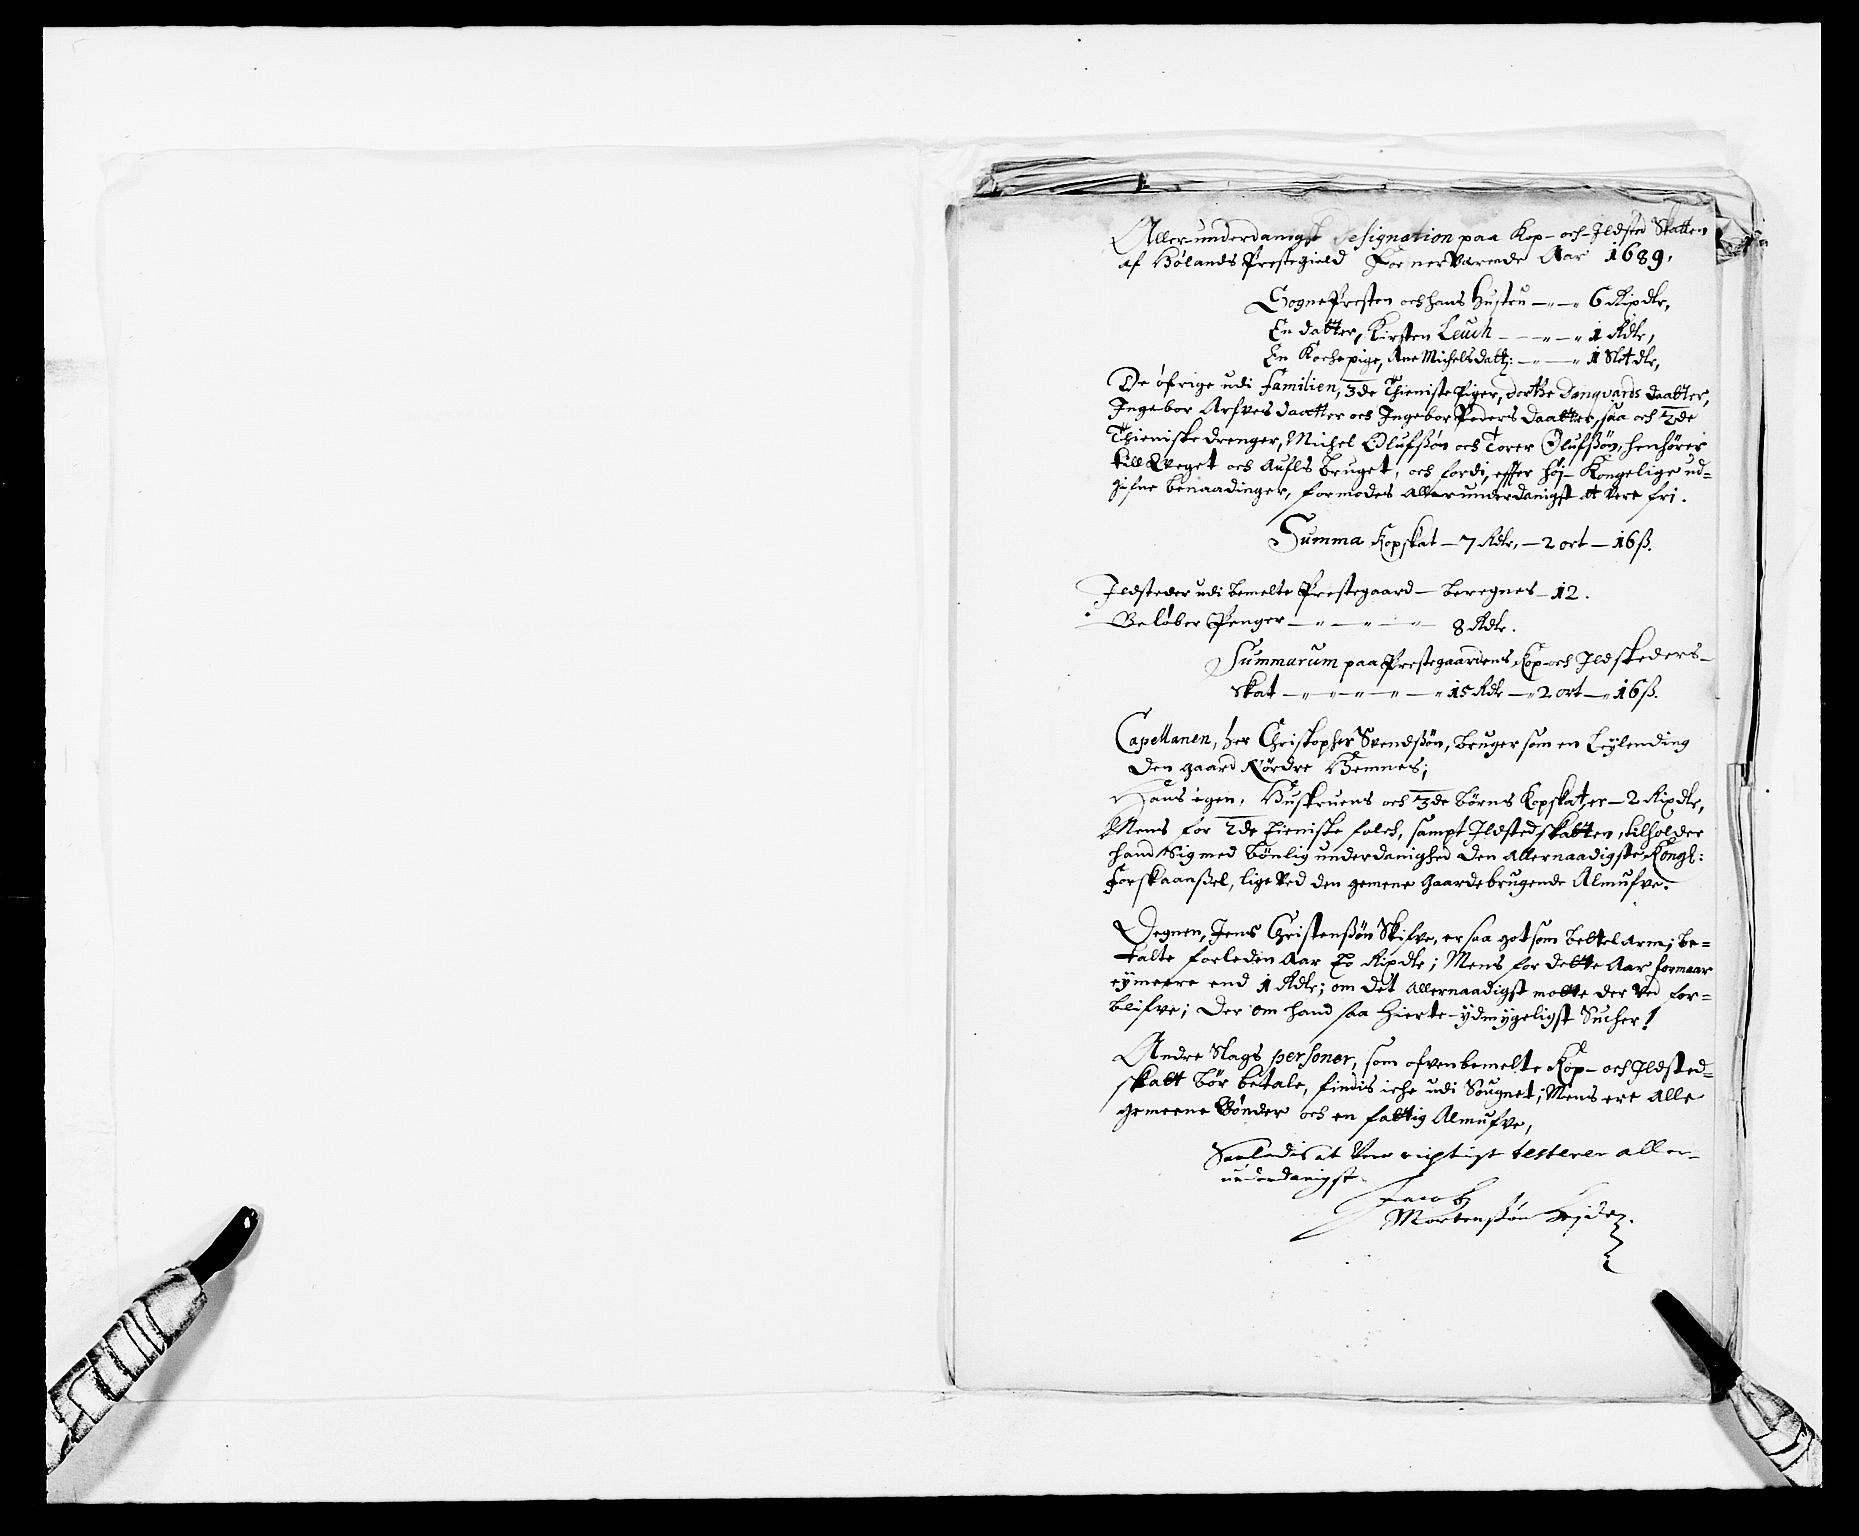 Allerunderdanigst Designation paa Kop- och Ildsted Skatten
af Hølands Prestegield For nerværende Aar 1689.
SognePresten och hans Hustru — 6 Rixdlr,
En datter, Kirsten Leuch — 1 Rdlr,
En Kochepige, Ane Michelsdatt: — 1 Slet dlr,
De öfrige udi familien, 3de Thieniste Piger, dorthe danqvards daatter,
Ingebor Arfves daatter och Ingebor Peders daatter, saa och 2de
Thieniste drenger, Michel Olufßøn och Torer Olufßøn, henhörer
till Qveget och Aufls bruget, och fordi, effter höj- Kongelige ud-
gifne benaadinger, formodes allerunderdanigst at vere fri.
Summa Kopskat — 7 Rdlr, — 2 ort — 16 ß.
Ildsteder udi bemelte Prestegaard — beregnes — 12.
Beløber Penger — 8 Rdlr.
Summarum paa Prestegaardens Kop- och Ildsteders-
skat — 15 Rdlr — 2 ort — 16 ß.
Capellanen, her Christopher Svendßøn, bruger som en Leylending
den gaard Nördre Hemnes;
Hans egen, Hustruens och 3de børns Kopskat, er — 2 Rixdlr,
Mens for 2de tieniste folch, sampt Ildstedskatten, tilholder
hand sig med bönlig underdanighed den allernaadigste Kongl:
Forskaanßel, lige ved den gemene gaardebrugende Almufve.
Degnen, Jens Christenßøn Skifve, er saa got som bettelarm; be-
talte forleden Aar to Rixdlr; Mens for dette Aar formaar
ey meere end 1 Rdlr; om det allernaadigst motte der ved for-
blifve; der om hand saa hierte-ydmygeligst Sucher!
Andre Slags personer, som ofvenbemelte Kop- och Ildsted-
skatt bør betale, findis iche udi Sougnet; Mens ere alle
gemeene Bönder och en fattig Almufve,
Saaledis at vere rigtigt testerer aller-
underdanigst.
Jacob
Mortenßøn